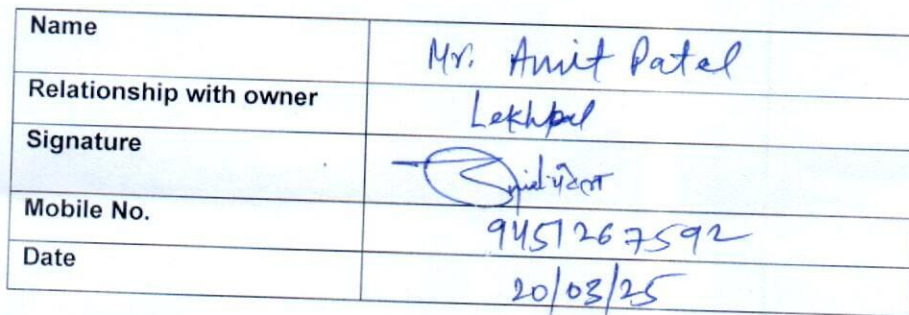 Name Mr. Amit Patel
Relationship with owner Lekhpal
Signature
Mobile No. 9451267592
Date 20/03/25